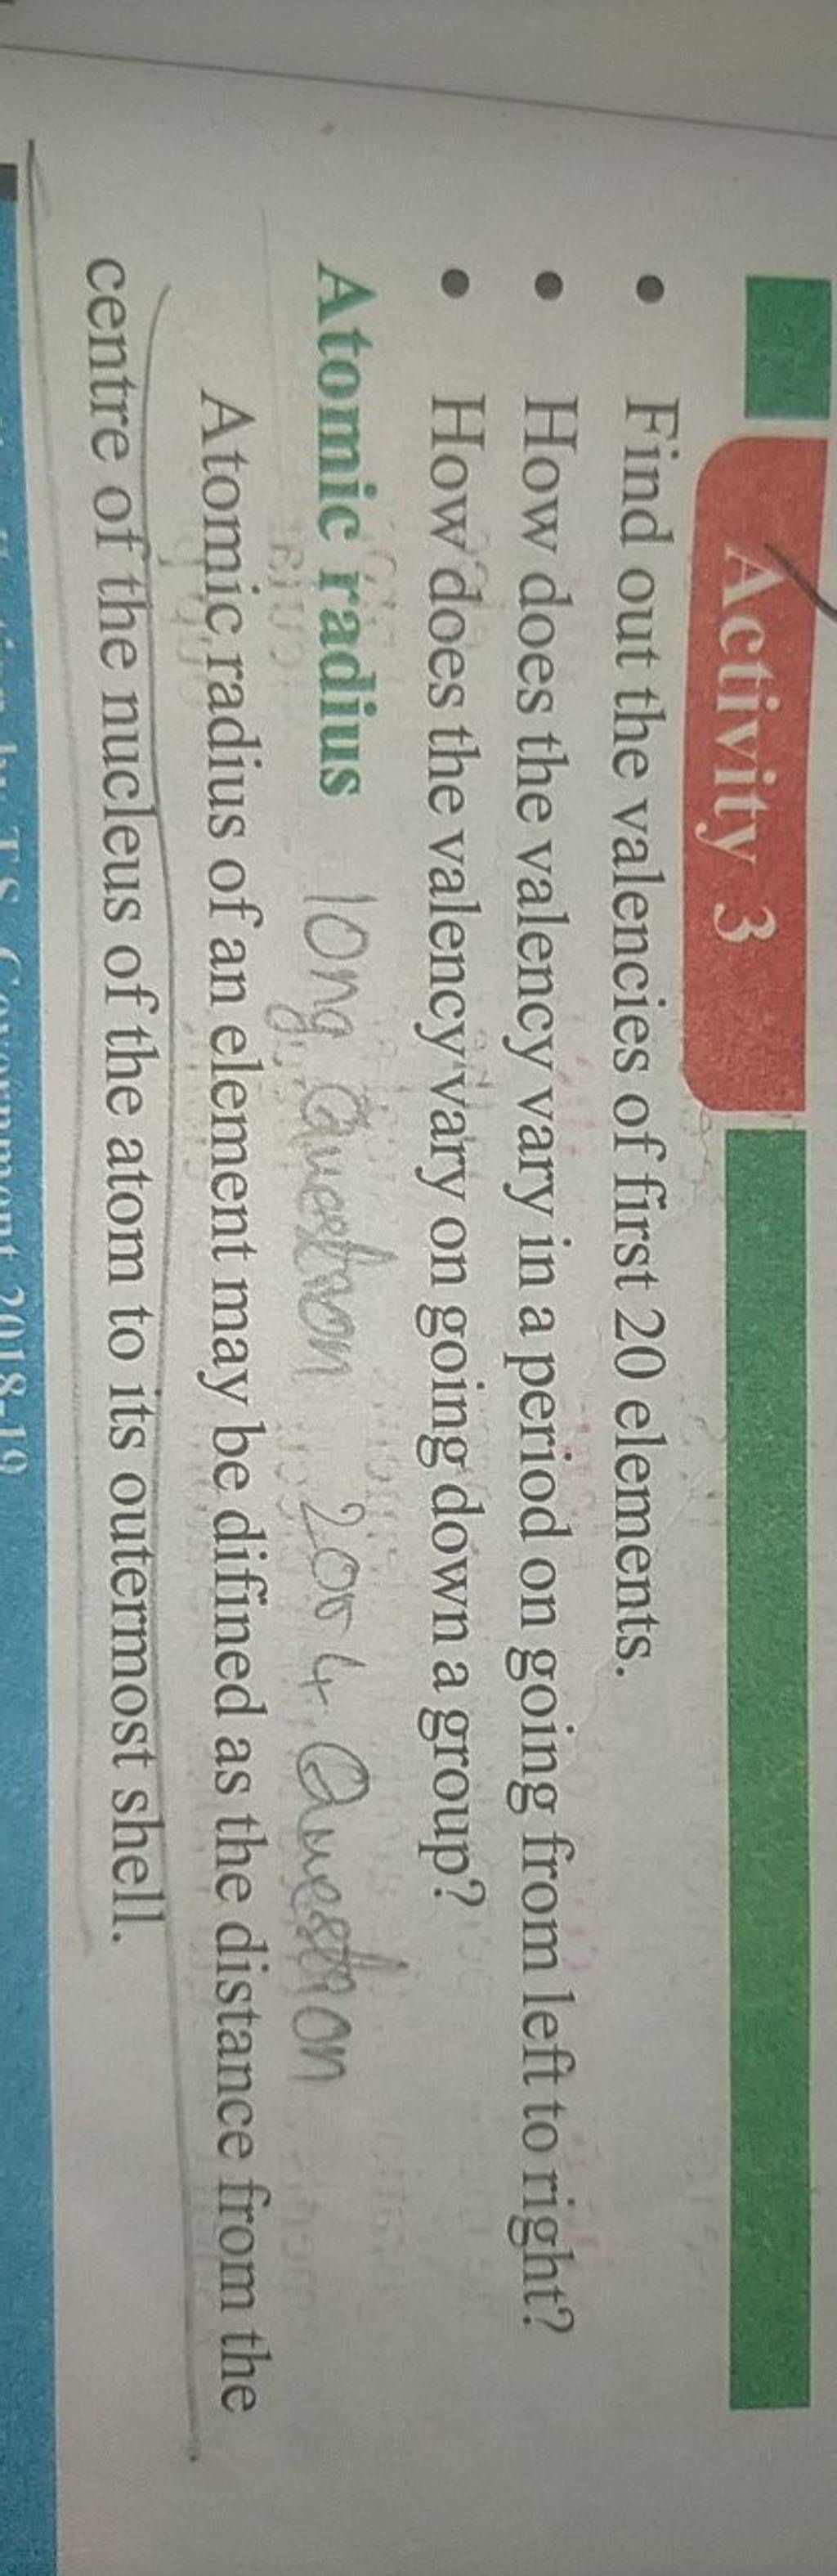 Activity 3
• Find out the valencies of first 20 elements.
• How does the valency vary in a period on going from left to right?
• How does the valency vary on going down a group?
Atomic radius long Question 2004 Question
Atomic radius of an element may be difined as the distance from the
centre of the nucleus of the atom to its outermost shell.
by T.S. Government 2018-19